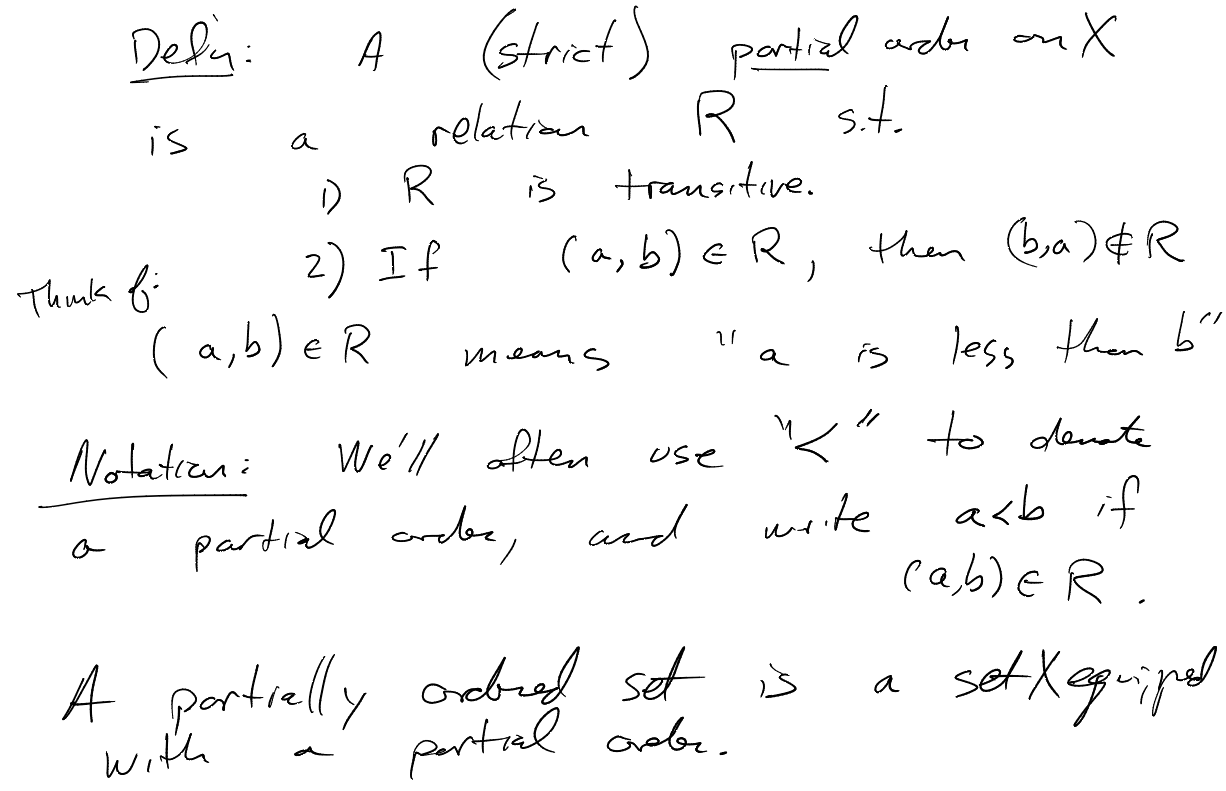 Def'n: A (strict) partial order on X
is a relation R s.t.
1) R is transitive.
2) If (a,b) ∈ R, then (b,a) ∉ R
Think of:
(a,b) ∈ R means "a is less than b"
Notation: We'll often use "<" to denote
a partial order, and write a<b if
(a,b) ∈ R.
A partially ordered set is a set X equipped
with a partial order.